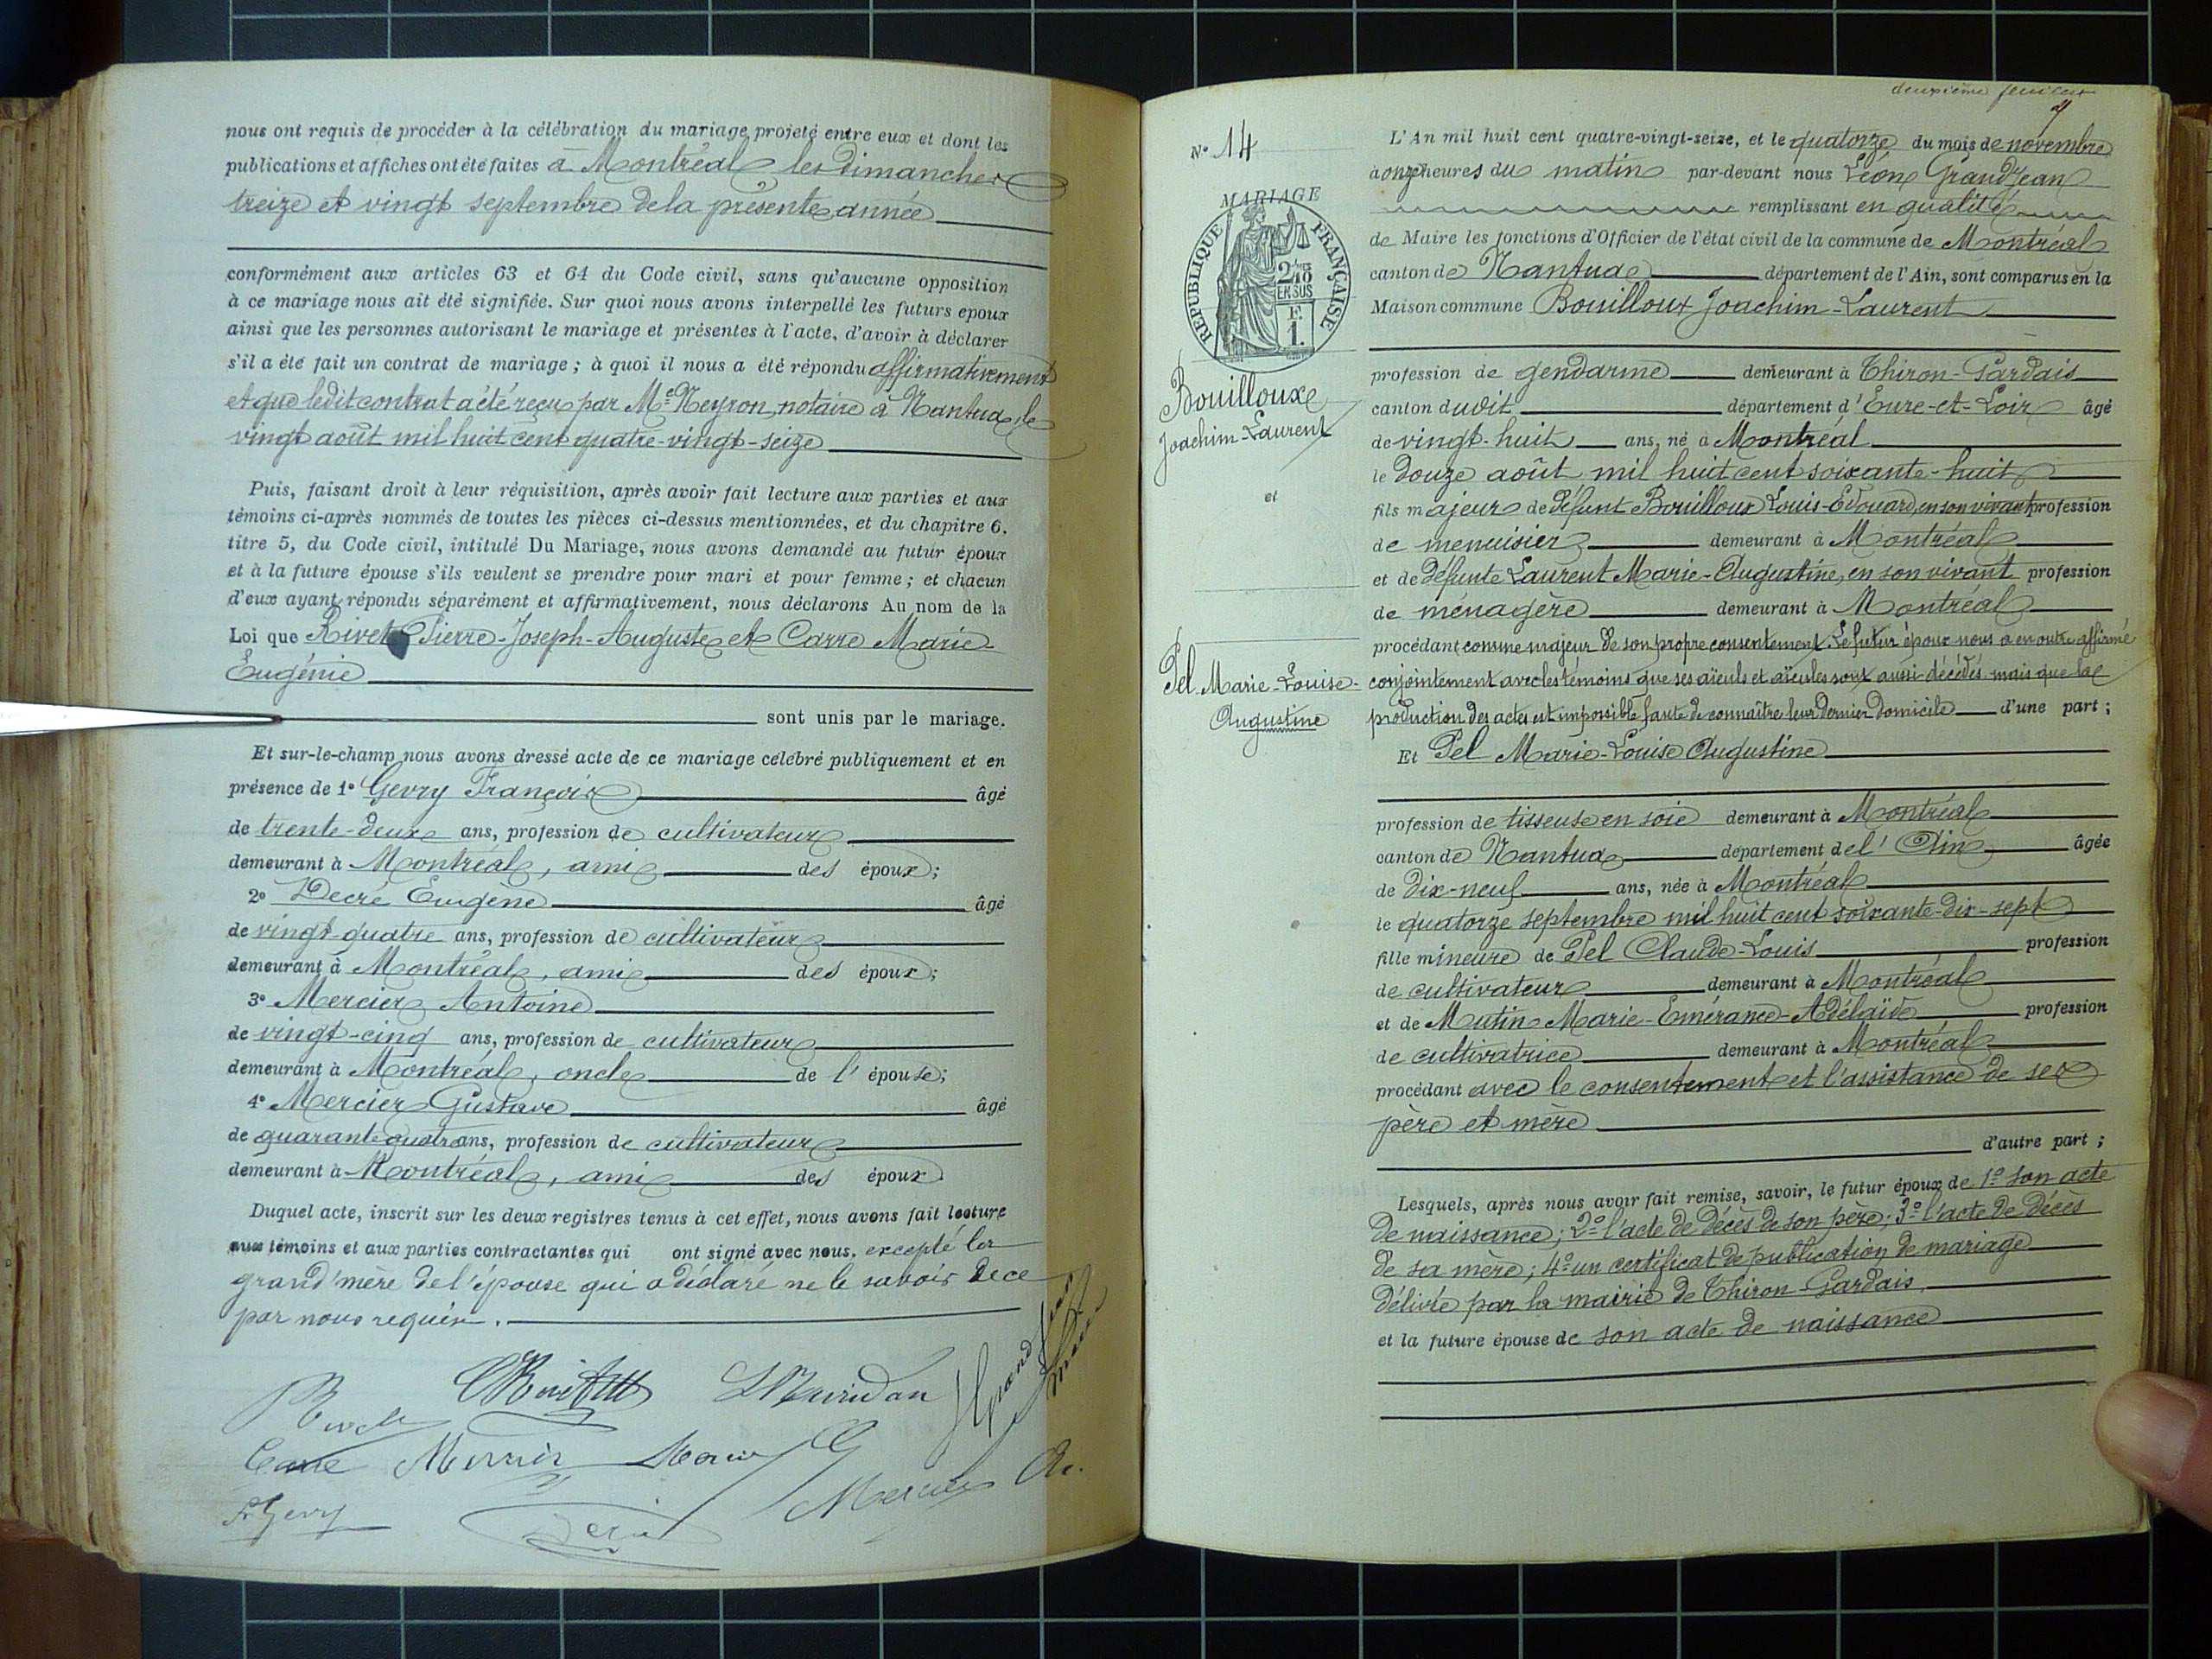 nous ont requis de procéder à la célébration du mariage projeté entre eux et dont les
publications et affiches ont été faites à Montréal les dimanches
treize et vingt septembre de la présente année
conformément aux articles 63 et 64 du Code civil, sans qu'aucune opposition
à ce mariage nous ait été signifiée. Sur quoi nous avons interpellé les futurs epoux
ainsi que les personnes autorisant le mariage et présentes à l'acte, d'avoir à déclarer
s'il a été fait un contrat de mariage ; à quoi il nous a été répondu affirmativement
et que ledit contrat a été reçu par Me Neyron, notaire à Nantua, le
vingt août mil huit cent quatre-vingt-seize
Puis, faisant droit à leur réquisition, après avoir fait lecture aux parties et aux
témoins ci-après nommés de toutes les pièces ci-dessus mentionnées, et du chapitre 6,
titre 5, du Code civil, intitulé Du Mariage, nous avons demandé au futur époux
et à la future épouse s'ils veulent se prendre pour mari et pour femme ; et chacun
d'eux ayant répondu séparément et affirmativement, nous déclarons Au nom de la
Loi que Rivet Pierre-Joseph-Auguste et Carre Marie-
Eugénie
sont unis par le mariage.
Et sur-le-champ nous avons dressé acte de ce mariage célébré publiquement et en
présence de 1° Gevry François âgé
de trente-deux ans, profession de cultivateur
demeurant à Montréal, ami des époux ;
2° Decré Eugène âgé
de vingt-quatre ans, profession de cultivateur
demeurant à Montréal, ami des époux ;
3° Mercier Antoine
de vingt-cinq ans, profession de cultivateur
demeurant à Montréal, oncle de l'épouse ;
4° Mercier Gustave âgé
de quarante quatre ans, profession de cultivateur
demeurant à Montréal, ami des époux
Duquel acte, inscrit sur les deux registres tenus à cet effet, nous avons fait lecture
aux témoins et aux parties contractantes qui ont signé avec nous, excepté la
grand'mère de l'épouse qui a déclaré ne le savoir de ce
par nous requise.
Carre Mercier
F. Gevry Mercier A.
deuxième feuillet
N° 14
MARIAGE
RÉPUBLIQUE FRANÇAISE
2/10
EN SUS
E.
1.
Bouilloux
Joachim-Laurent
et
Pel Marie-Louise-
Augustine
L'An mil huit cent quatre-vingt-seize, et le quatorze du mois de novembre
à onze heures du matin par-devant nous Léon Grandjean
remplissant en qualité
de Maire les fonctions d'Officier de l'état civil de la commune de Montréal
canton de Nantua département de l'Ain, sont comparus en la
Maison commune Bouilloux Joachim-Laurent
profession de gendarme demeurant à Thiron-Gardais
canton dudit département d'Eure-et-Loir âgé
de vingt-huit ans, né à Montréal
le douze août mil huit cent soixante-huit
fils majeur de défunt Bouilloux Louis-Edouard, en son vivant profession
de menuisier demeurant à Montréal
et de défunte Laurent Marie-Augustine, en son vivant profession
de ménagère demeurant à Montréal
procédant comme majeur de son propre consentement. Le futur époux nous a en outre affirmé
conjointement avec les témoins que ses aïeuls et aïeules sont aussi décédés mais que la
production des actes est impossible faute de connaître leur dernier domicile d'une part ;
Et Pel Marie-Louise Augustine
profession de tisseuse en soie demeurant à Montréal
canton de Nantua département de l'Ain âgée
de dix-neuf ans, née à Montréal
le quatorze septembre mil huit cent soixante-dix-sept
fille mineure de Pel Claude-Louis profession
de cultivateur demeurant à Montréal
et de Mutin Marie-Emérance-Adélaïde profession
de cultivatrice demeurant à Montréal
procédant avec le consentement et l'assistance de ses
père et mère
d'autre part ;
Lesquels, après nous avoir fait remise, savoir, le futur époux de 1° son acte
de naissance ; 2° l'acte de décès de son père ; 3° l'acte de décès
de sa mère ; 4° un certificat de publication de mariage
délivré par la mairie de Thiron-Gardais,
et la future épouse de son acte de naissance